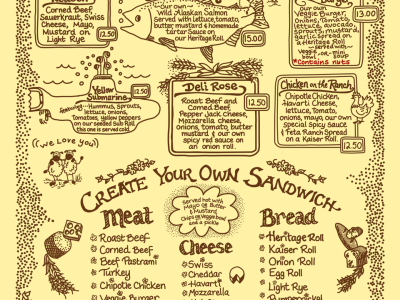 Corned Beef,
Sauerkraut, Swiss
Cheese, Mayo,
Mustard on
Light Rye
12.50
our own
Wild Alaskan Salmon
Served with lettuce, tomato,
butter, mustard & homemade
tartar Sauce on
our Heritage Roll
15.00
our own
Veggie
Onions, Tomato,
lettuce, avocado,
sprouts, mustard,
garlic spread on
a Heritage Roll
served with
Veggie or Bean
bowl
*Contains nuts
13.00
Yellow
Submarine
12.50
Hummus, Sprouts,
lettuce, onions,
Tomatoes, Yellow peppers
on our seeded Sub Roll
this one is served cold
Deli Rose
Roast Beef and
Corned Beef,
Pepper Jack Cheese,
Mozzarella cheese,
onions, tomato, butter
mustard & our own
spicy red sauce on
an onion roll.
12.50
Chicken on the Ranch
Chipotle Chicken,
Havarti Cheese,
lettuce, Tomato,
onions, mayo, our own
special Spicy Sauce
& Feta Ranch Spread
on a Kaiser Roll
12.50
((we Love you))
Create Your Own Sandwich
served hot with
Mayo or Butter
& Mustard
Chips or Veggie bowl
and a pickle
Meat
Roast Beef
Corned Beef
Beef Pastrami
Turkey
Chipotle Chicken
Veggie Burger
Cheese
Swiss
Cheddar
Havarti
Mozzarella
Bread
Heritage Roll
Kaiser Roll
Onion Roll
Egg Roll
Light Rye
Pumpernickel